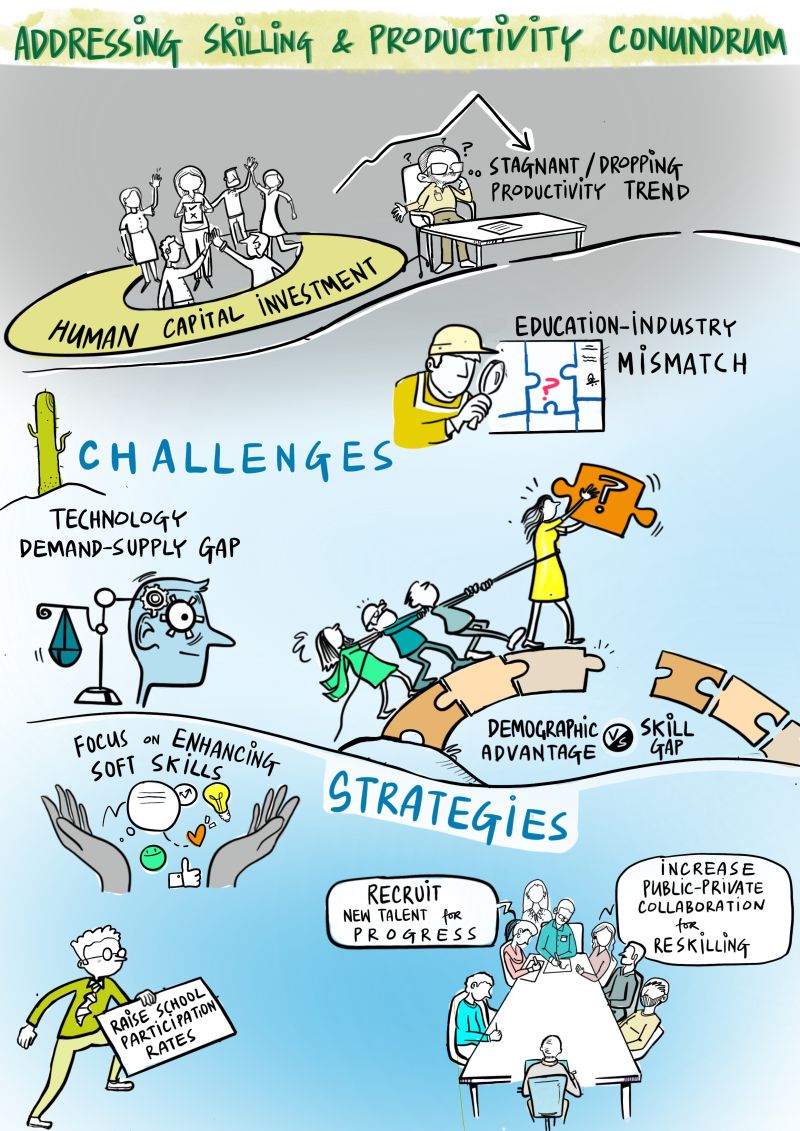 ADDRESSING SKILLING & PRODUCTIVITY CONUNDRUM
? ? ?
STAGNANT/DROPPING
PRODUCTIVITY TREND
HUMAN CAPITAL INVESTMENT
EDUCATION-INDUSTRY
MISMATCH
?
CHALLENGES
?
TECHNOLOGY
DEMAND-SUPPLY GAP
DEMOGRAPHIC
ADVANTAGE
VS
SKILL
GAP
FOCUS ON ENHANCING
SOFT SKILLS
STRATEGIES
RECRUIT
NEW TALENT for
PROGRESS
INCREASE
PUBLIC-PRIVATE
COLLABORATION
for
RESKILLING
RAISE SCHOOL
PARTICIPATION
RATES